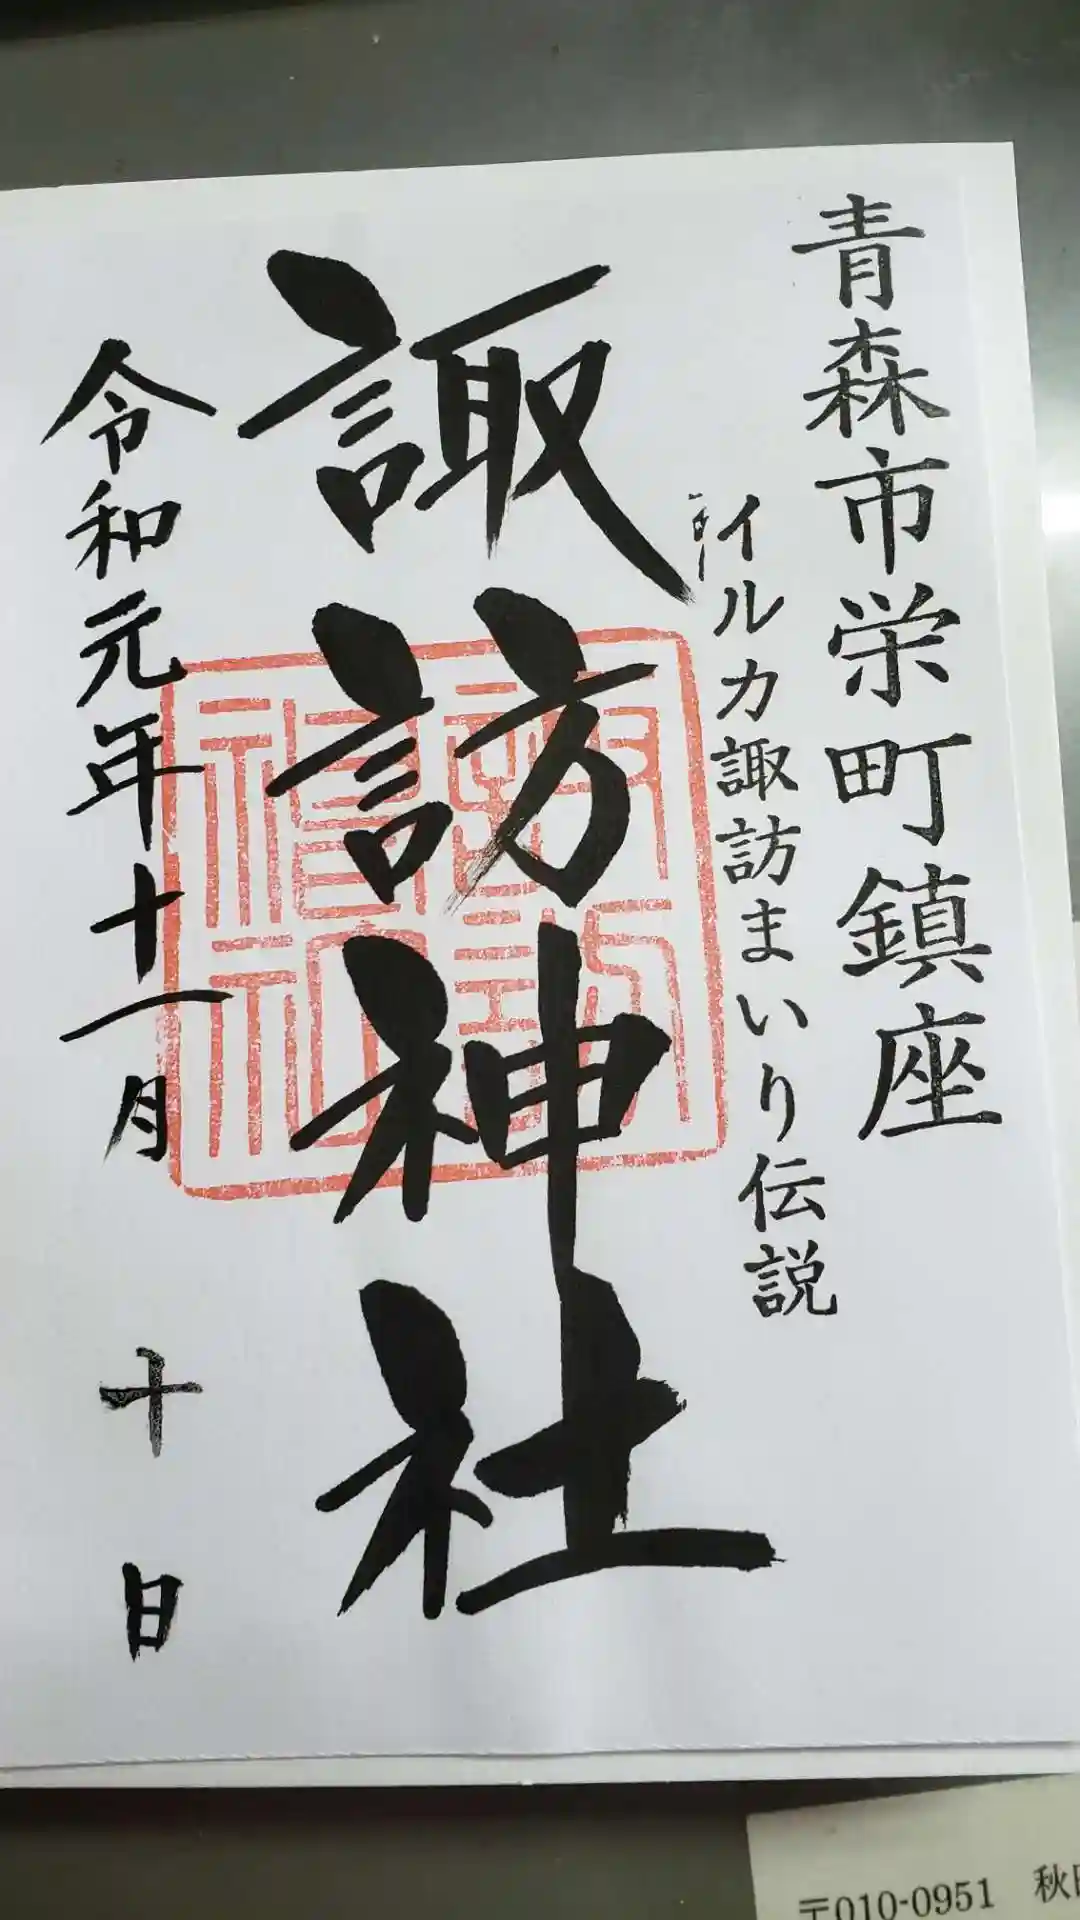 青森市栄町鎮座
イルカ諏訪まいり伝説
諏訪神社
令和元年十一月十日
〒010-0951 秋田